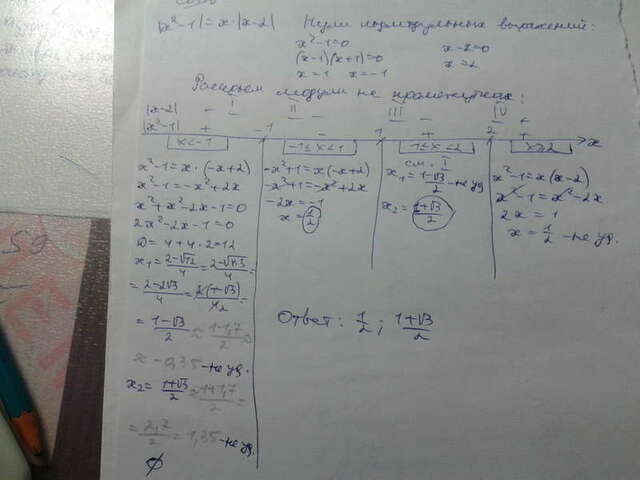 |x²-1| = x·|x-2|
Нули подмодульных выражений:
x²-1=0
(x-1)(x+1)=0
x=1 x=-1
x-2=0
x=2
Раскроем модули на промежутках:
|x-2| - I II - III - IV +
|x²-1| + -1 - 1 + 2 + x
x<-1
x²-1=x·(-x+2)
x²-1=-x²+2x
x²+x²-2x-1=0
2x²-2x-1=0
D=4+4·2=12
x₁=(2-√12)/4=(2-√4·3)/4=
=(2-2√3)/4=2(1-√3)/4₂=
=(1-√3)/2≈(1-1,7)/2≈
≈-0,35-не уд.
x₂=(1+√3)/2≈(1+1,7)/2=
=2,7/2=1,35-не уд.
∅
-1≤x<1
-x²+1=x(-x+2)
-x²+1=-x²+2x
-2x=-1
x=1/2
1≤x<2
см. I
x₁=(1-√3)/2-не уд
x₂=(1+√3)/2
x≥2
x²-1=x(x-2)
x²-1=x²-2x
2x=1
x=1/2-не уд.
Ответ: 1/2; (1+√3)/2
59